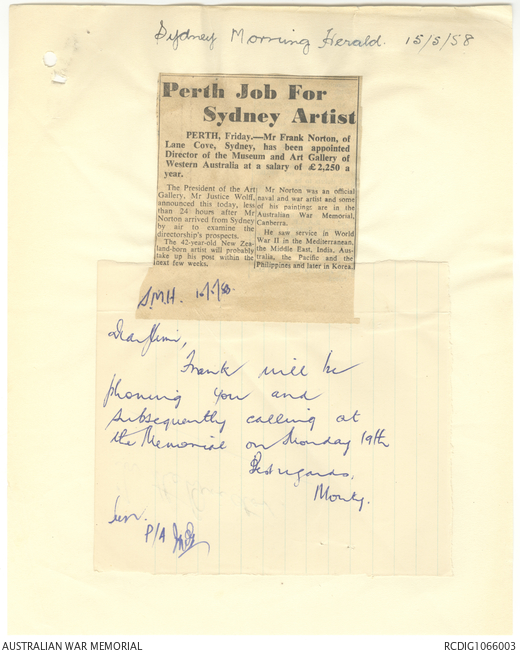 Sydney Morning Herald. 15/5/58
Perth Job For
Sydney Artist
PERTH, Friday.—Mr Frank Norton, of
Lane Cove, Sydney, has been appointed
Director of the Museum and Art Gallery of
Western Australia at a salary of £2,250 a
year.
The President of the Art
Gallery, Mr Justice Wolff,
announced this today, less
than 24 hours after Mr
Norton arrived from Sydney
by air to examine the
directorship's prospects.
The 42-year-old New Zea-
land-born artist will probably
take up his post within the
next few weeks.
Mr Norton was an official
naval and war artist and some
of his paintings are in the
Australian War Memorial,
Canberra.
He saw service in World
War II in the Mediterranean,
the Middle East, India, Aus-
tralia, the Pacific and the
Philippines and later in Korea.
S.M.H.
Dear
Frank will be
phoning you and
subsequently calling at
the Memorial on Monday 19th
Best regards,
Monty.
P/A
AUSTRALIAN WAR MEMORIAL
RCDIG1066003